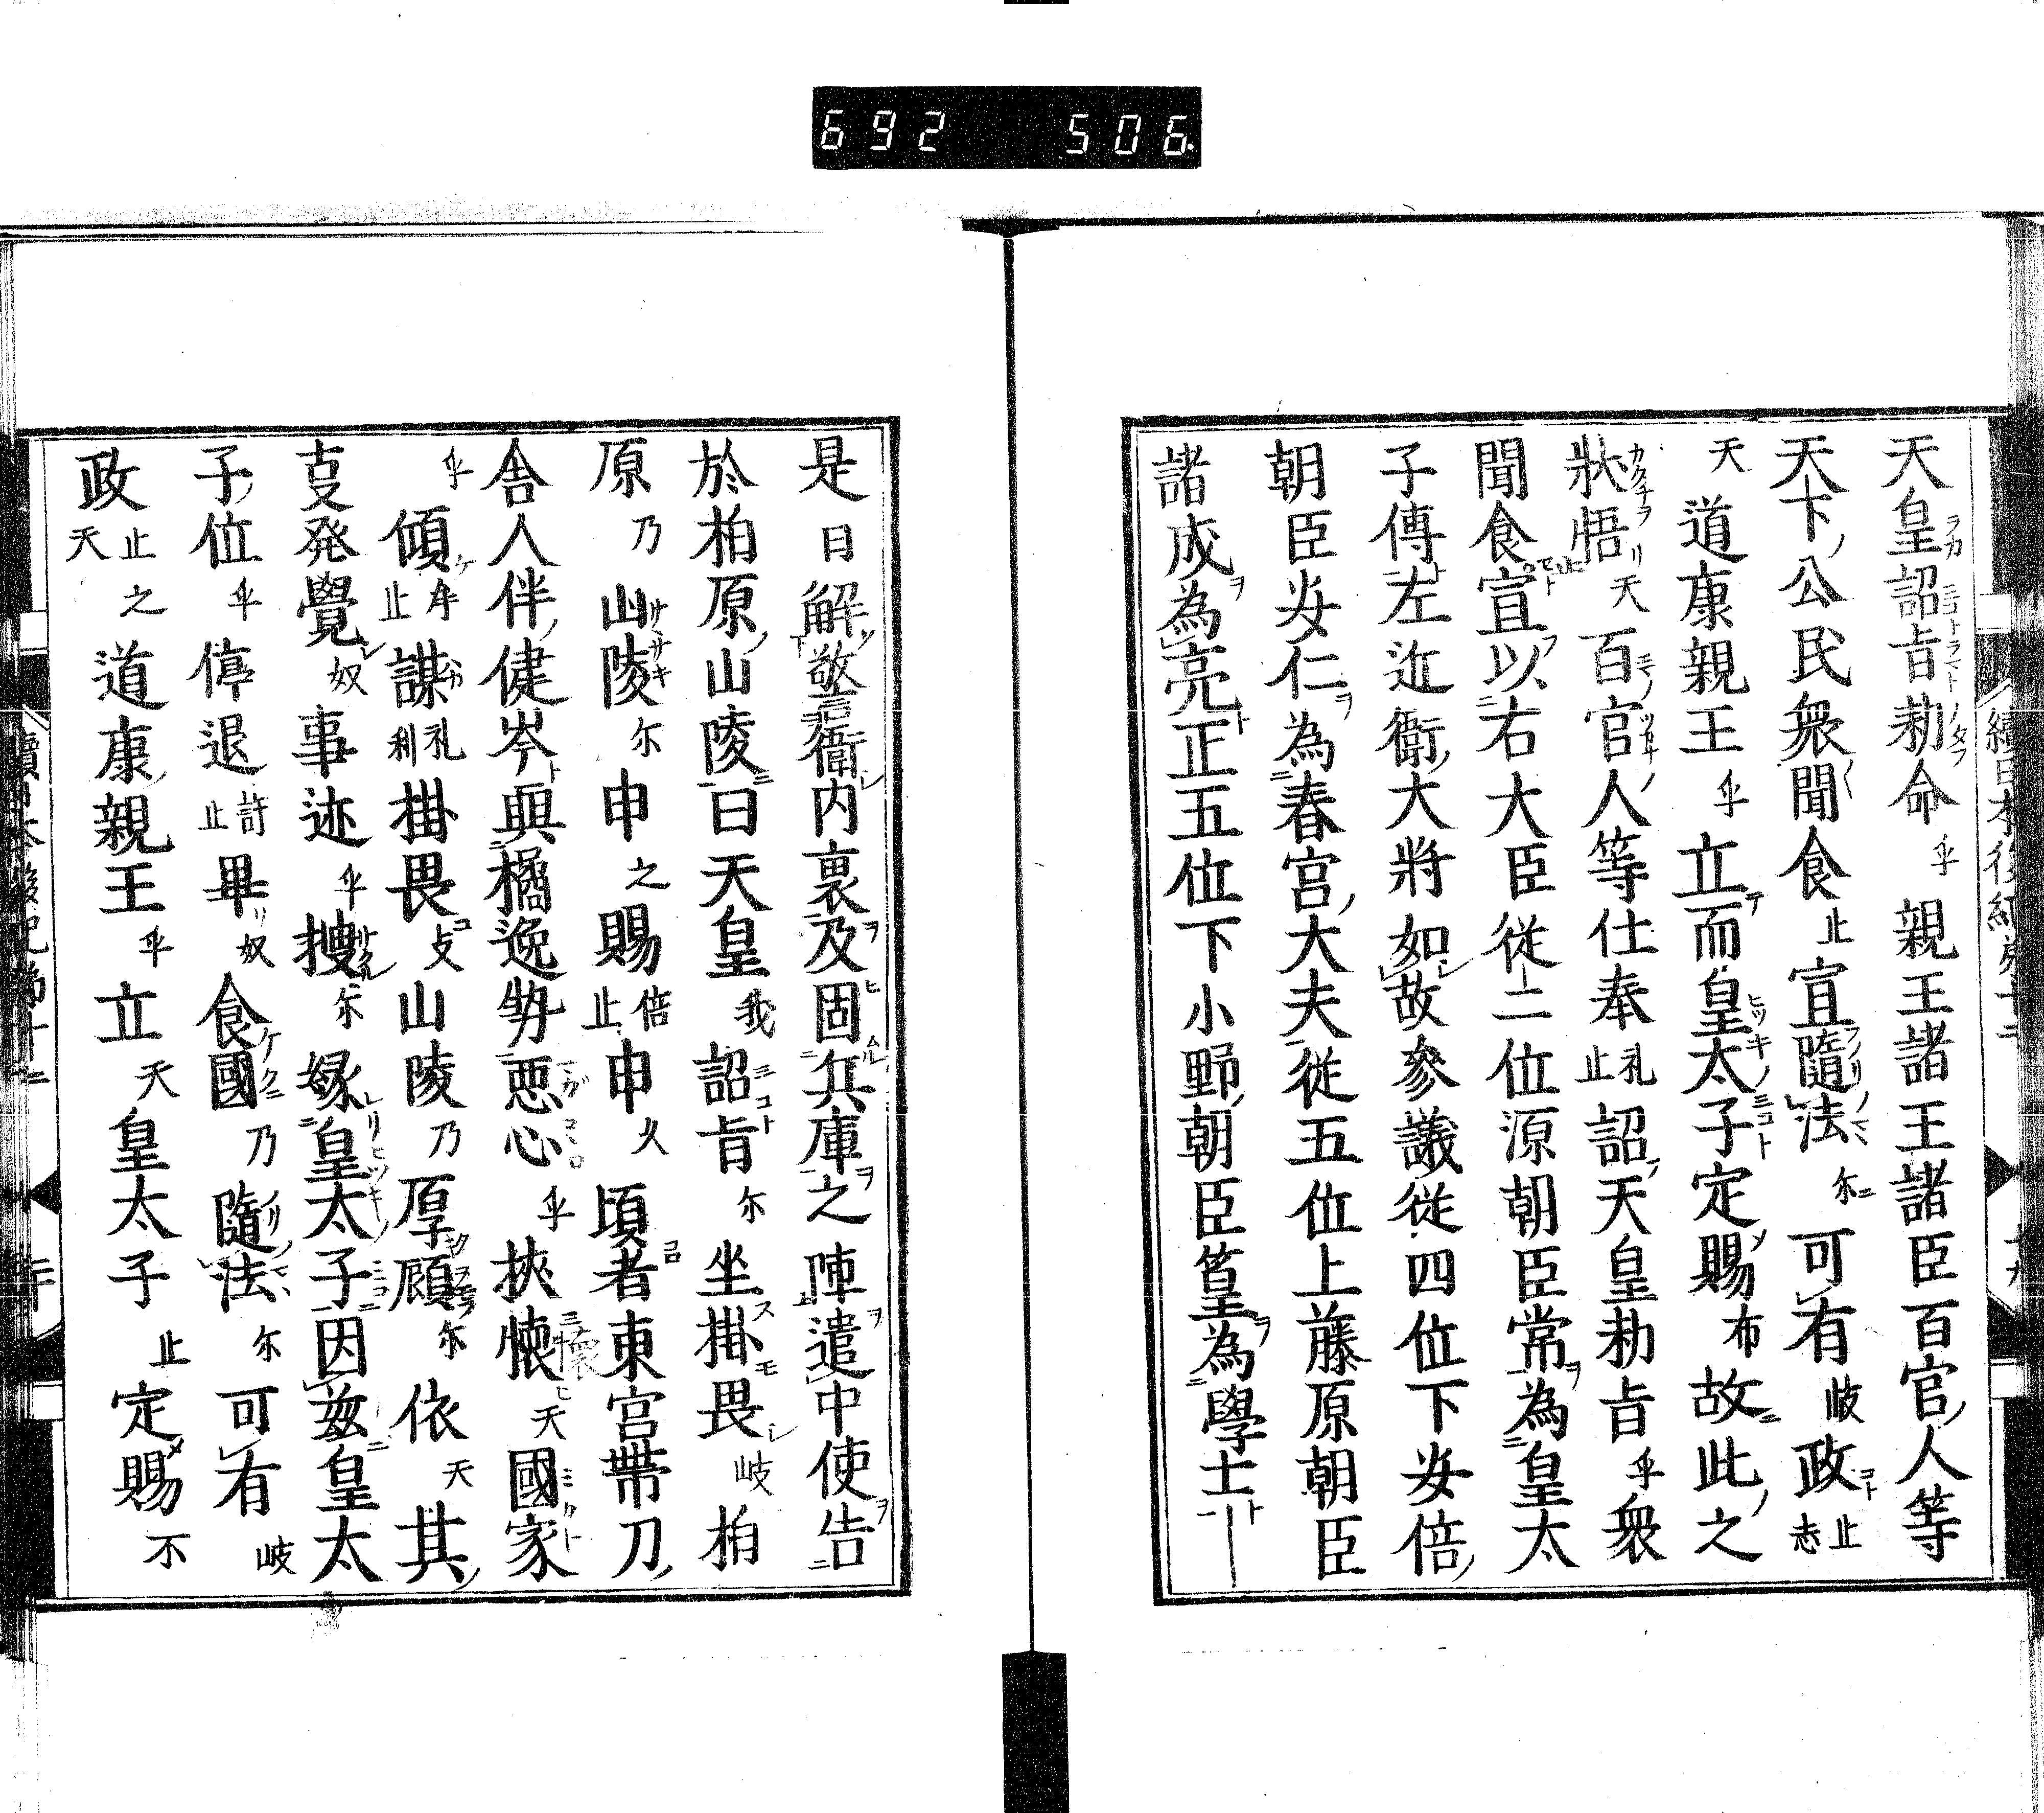 692 506
天皇詔旨勅命乎親王諸王諸臣百官人等
天下公民衆聞食止宣隨法尓可有岐政止志
天道康親王乎立而皇太子定賜布故此之
狀悟天百官人等仕奉礼止詔天皇勅旨乎衆
聞食宣以右大臣從二位源朝臣常為皇太
子傅左近衛大將如故參議從四位下安倍
朝臣安仁為春宮大夫從五位上藤原朝臣
諸成為亮正五位下小野朝臣篁為學士
是日解警衛内裏及固兵庫之陣遣中使告
於柏原山陵曰天皇我詔旨尓坐掛畏岐柏
原乃山陵尓申之賜倍止申久頃者東宮帶刀
舎人伴健岑與橘逸勢悪心乎挾懐天國家
乎傾牟止謀礼利掛畏支山陵乃厚顧尓依天其
事発覺奴事迹乎捜尓縁皇太子因茲皇太
子位乎停退許止畢奴食國乃隨法尓可有岐
政止之天道康親王乎立天皇太子止定賜不